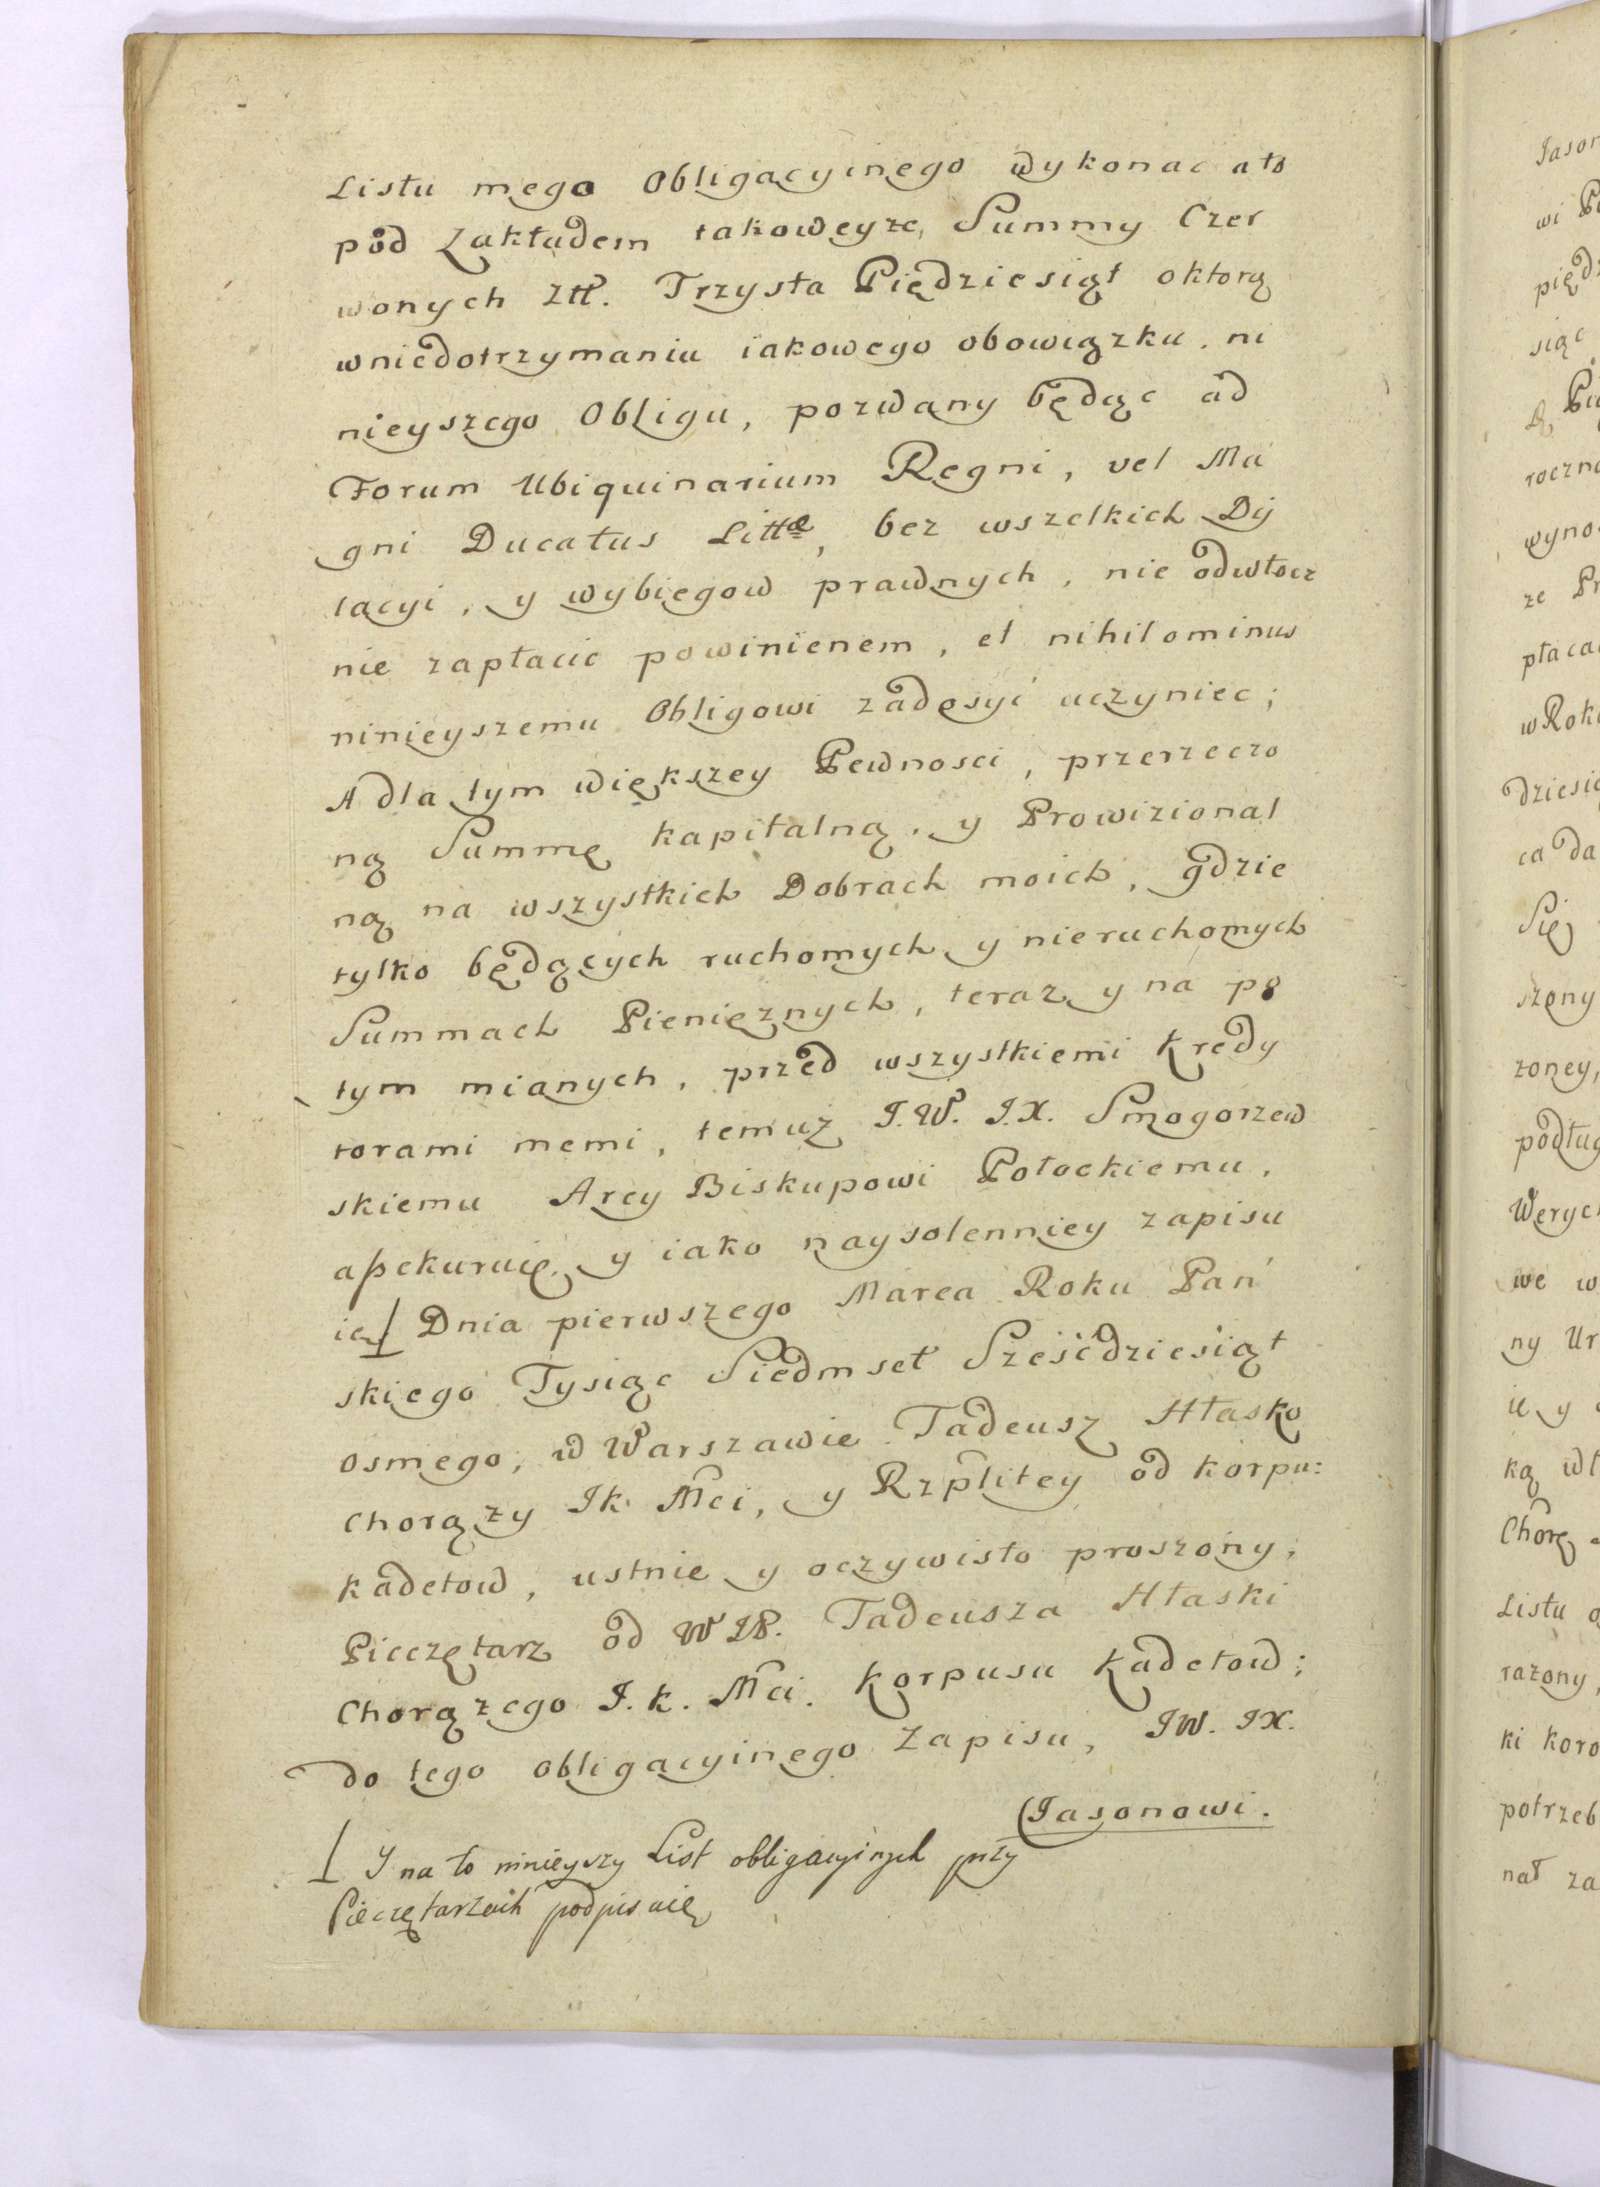 Listu mego Obligacyinego wykonac ato
pod Zakładem takoweyże, Summy Czer
wonych Ztł. Trzysta Pięдziesiąt oktorą
wniedotrzymaniu iakowego obowiązku, ni
nieyszego Obligu, pozwany będąc ad
Forum Ubiquinarium Regni, vel Ma
gni Ducatus Littæ, bez wszelkich Dy
lacyi, y wybiegow prawnych, nie odwłocz
nie zapłacic powinienem, et nihilominus
ninieyszemu Obligowi zadosyć uczyniec;
A dla tym większey Pewnosci, przerzeczo
ną Summę kapitalną, y Prowizional
ną na wszystkich Dobrach moich, gdzie
tylko będących ruchomych y nieruchomych
Summach Pieniężnych, teraz y na po
tym mianych, przed wszystkiemi Kredy
torami memi, temuż J.W. J.X. Smogorzew
skiemu Arcy Biskupowi Połockiemu,
aßekuruię, y iako naysolenniey zapisu
ię ⊥ Dnia pierwszego Marca Roku Pań
skiego Tysiąc Siedmset Sześćdziesiąt
osmego, w Warszawie Tadeusz Hłasko
Chorąży Jk Mci, y Rzplitey od korpu:
kadetow, ustnie y oczywisto proszony,
Pieczętarz od W JP. Tadeusza Hłaski
Chorążego J.k. Mci. Korpusu Kadetow;
do tego obligacyinego Zapisu, JW. JX.
Jasonowi.
⊥ Y na to ninieyszy List obligacyinych przy
Pieczętarzach podpisuię
Jason
wi
sią c
roczn
wyno
ze Pr
płaca
w Roku
dziesi
ca da
Się
szony
zoney,
podług
Weryc
we w
ny Ur
ią wł
Chorę
Listu o
rażony,
ki koro
potrzeb
nał za